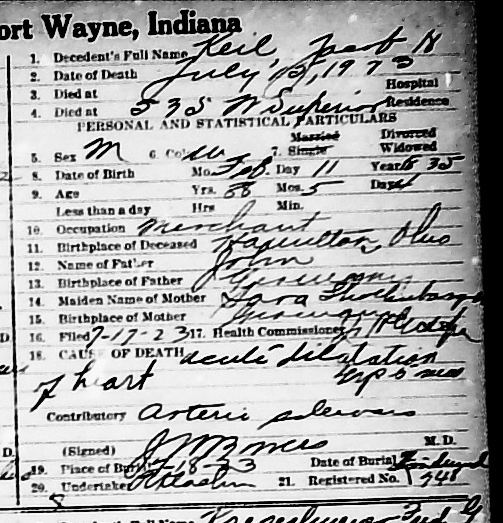 ort Wayne, Indiana
1. Decedent's Full Name Keil, Jacob H
2. Date of Death July, 15, 1923
3. Died at Hospital
4. Died at 535 W Superior Residence
PERSONAL AND STATISTICAL PARTICULARS
Married Divorced
5. Sex M 6. Color W 7. Single Widowed
8. Date of Birth Mo. Feb. Day 11 Year 35
9. Age Yrs. 88 Mos. 5 Days 4
Less than a day Hrs Min.
10. Occupation Merchant
11. Birthplace of Deceased Hamilton, Ohio
12. Name of Father John
13. Birthplace of Father Germany
14. Maiden Name of Mother Sara
15. Birthplace of Mother Germany
16. Filed 7-17-23 17. Health Commissioner
18. CAUSE OF DEATH acute dilatation
of heart
Contributory Arterio sclerosis
(Signed) M. D.
19. Place of Burial 7-18-23 Date of Burial
20. Undertaker 21. Registered No.